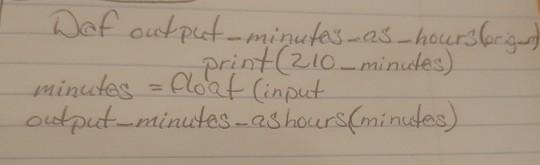 Def output_minutes_as_hours(orig_n)
print(210_minutes)
minutes = float (input
output_minutes_ashours(minutes)